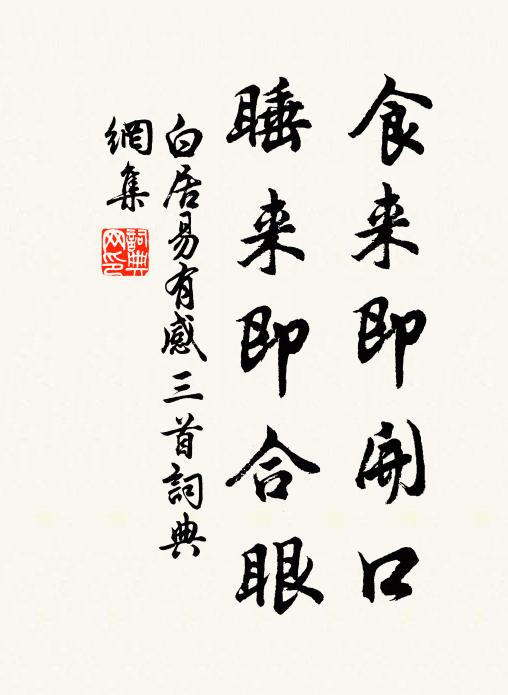 食来即開口
睡来即合眼
白居易有感三首詞典
網集
詞典
网印